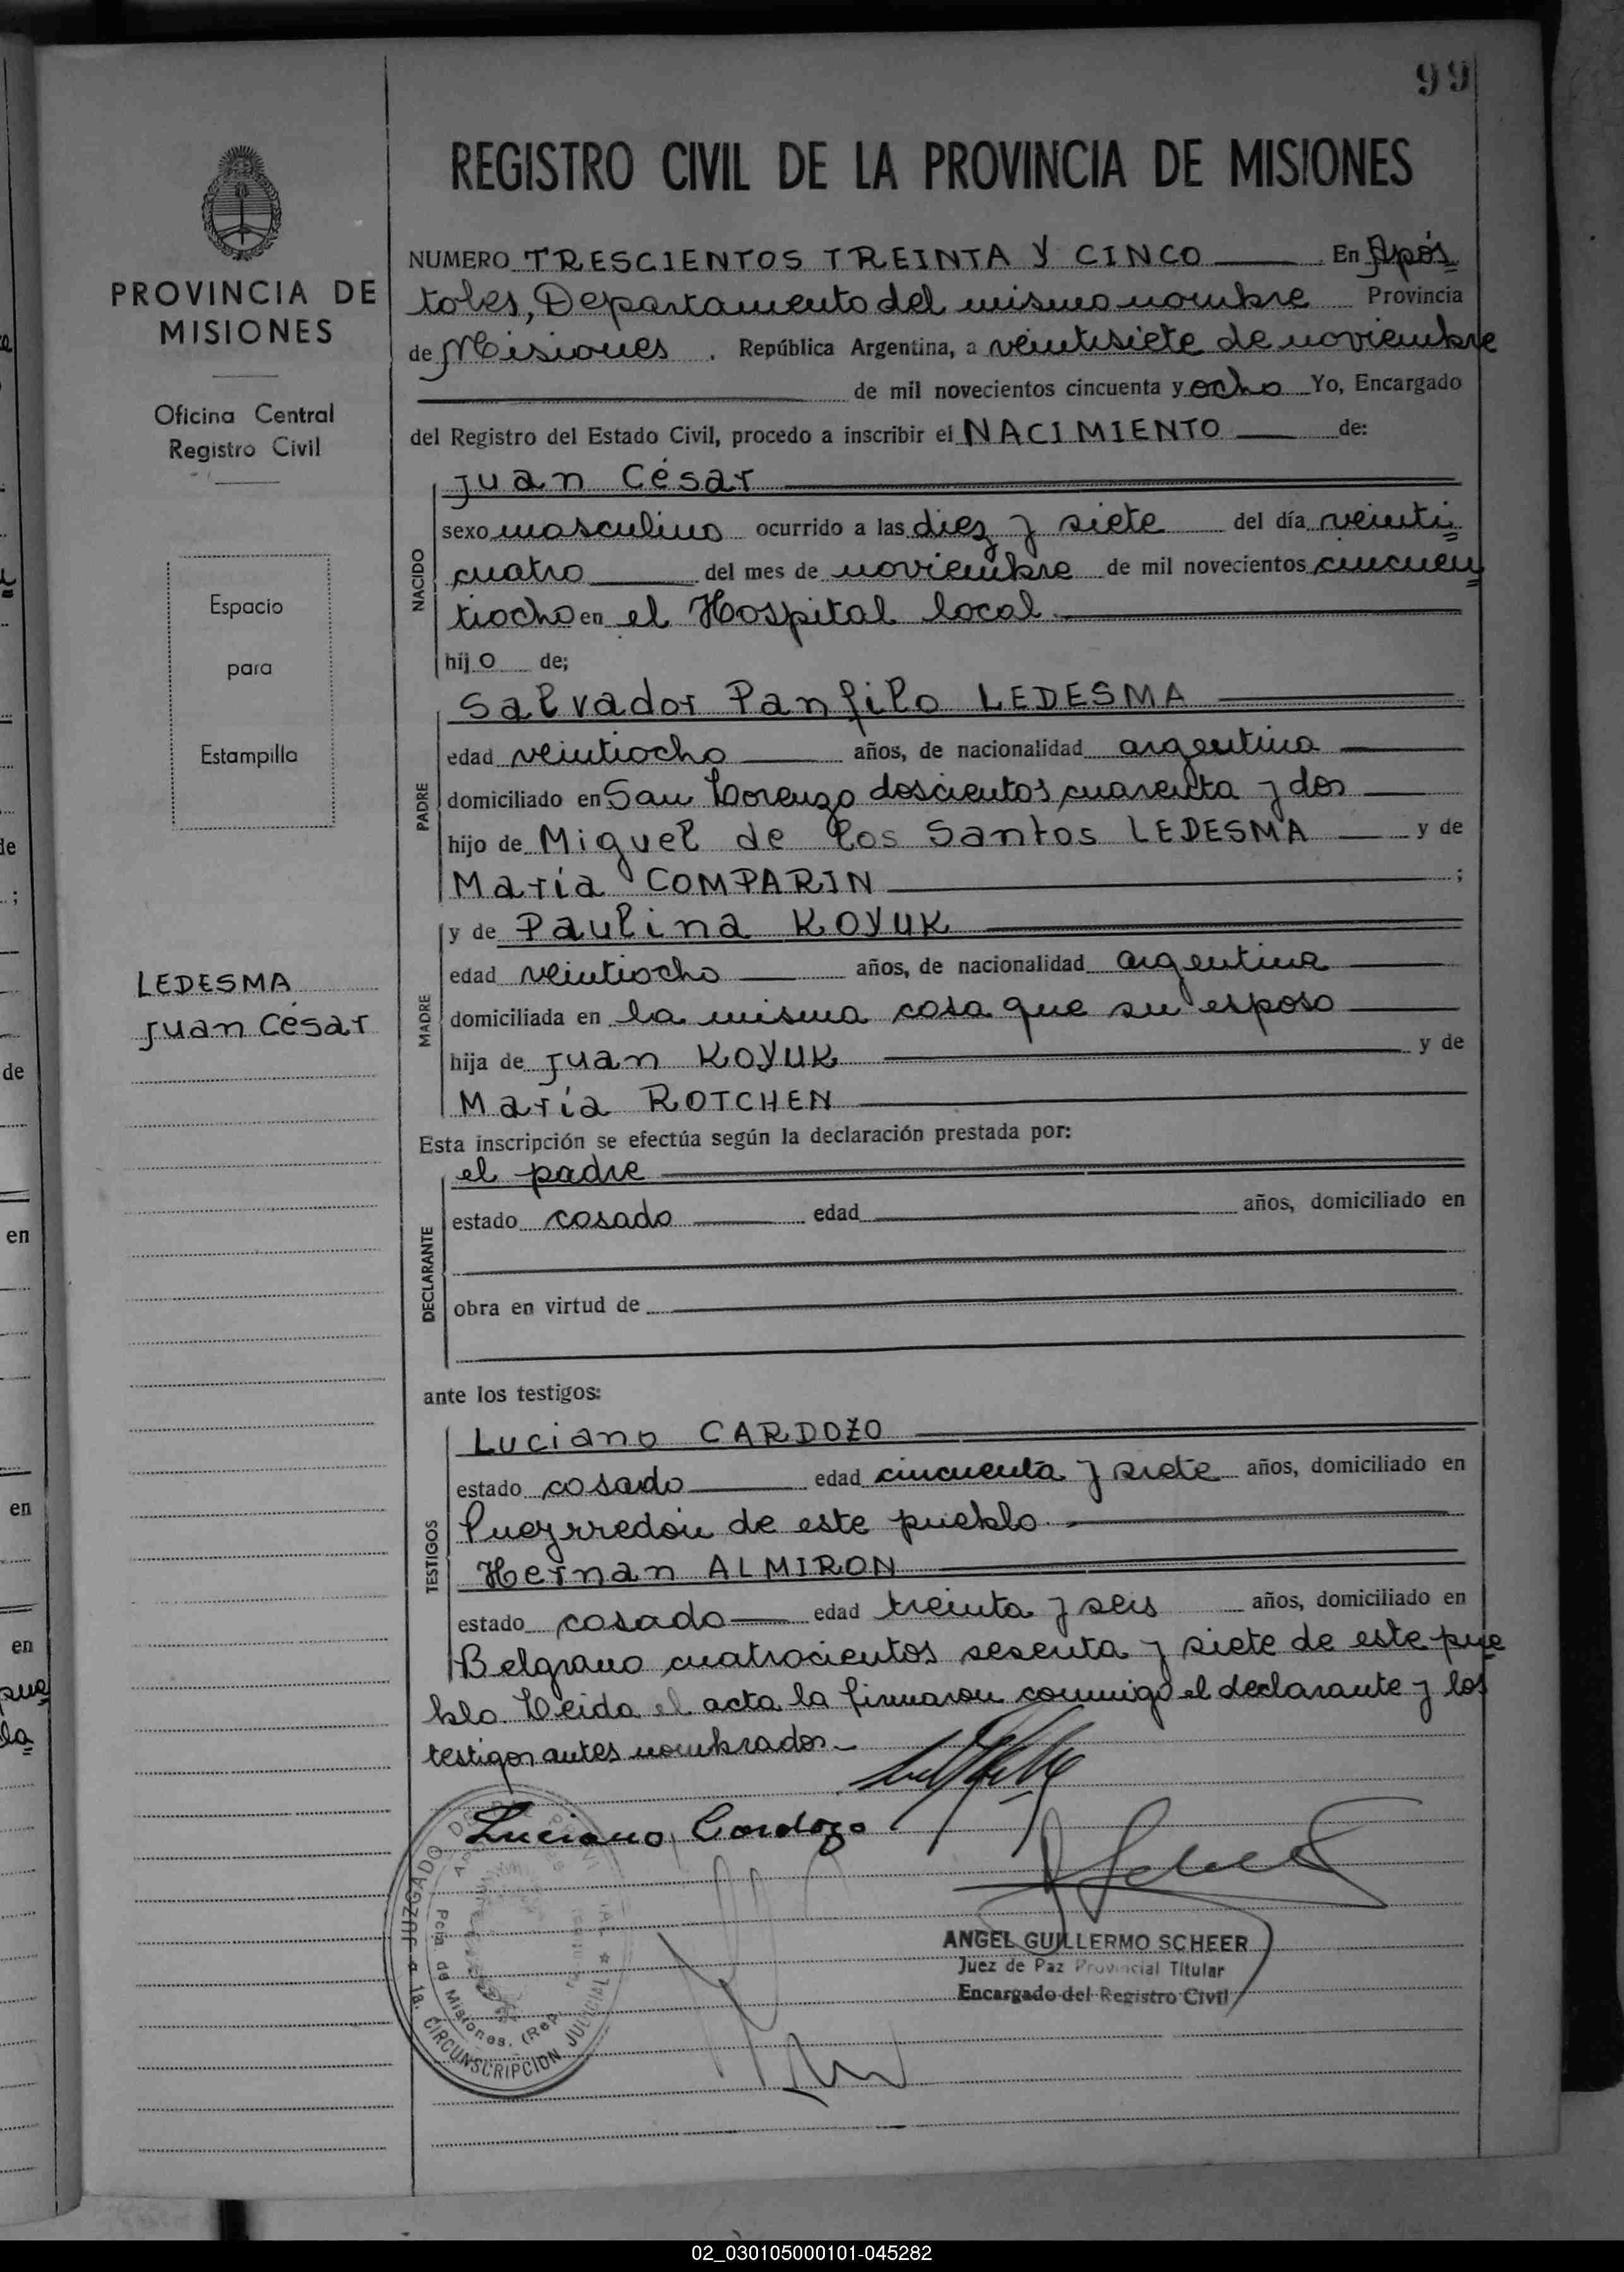 99
REGISTRO CIVIL DE LA PROVINCIA DE MISIONES
PROVINCIA DE
MISIONES
Oficina Central
Registro Civil
Espacio
para
Estampilla
LEDESMA
Juan César
NUMERO TRESCIENTOS TREINTA Y CINCO En Após
toles, Departamento del mismo nombre Provincia
de Misiones . República Argentina, a veintisiete de noviembre
de mil novecientos cincuenta y ocho Yo, Encargado
del Registro del Estado Civil, procedo a inscribir el NACIMIENTO de:
NACIDO
Juan César
sexo masculino ocurrido a las diez y siete del día veinti
cuatro del mes de noviembre de mil novecientos cincuen
tiocho en el Hospital local
hijo de;
PADRE
Salvador Panfilo LEDESMA
edad veintiocho años, de nacionalidad argentina
domiciliado en San Lorenzo doscientos cuarenta y dos
hijo de Miguel de los Santos LEDESMA y de
María COMPARIN ;
MADRE
y de Paulina KOYUK
edad veintiocho años, de nacionalidad argentina
domiciliada en la misma casa que su esposo
hija de Juan KOYUK y de
María ROTCHEN
Esta inscripción se efectúa según la declaración prestada por:
DECLARANTE
el padre
estado casado edad años, domiciliado en
obra en virtud de
ante los testigos:
TESTIGOS
Luciano CARDOZO
estado casado edad cincuenta y siete años, domiciliado en
Pueyrredón de este pueblo
Hernan ALMIRON
estado casado edad treinta y seis años, domiciliado en
Belgrano cuatrocientos sesenta y siete de este pue
blo. Leida el acta la firmaron conmigo el declarante y los
testigos antes nombrados.
Luciano Cardozo
JUZGADO DE PAZ
Pcia de Misiones. (Rep.
1a. CIRCUNSCRIPCION JUDICIAL
ANGEL GUILLERMO SCHEER
Juez de Paz Provincial Titular
Encargado del Registro Civil
02_030105000101-045282